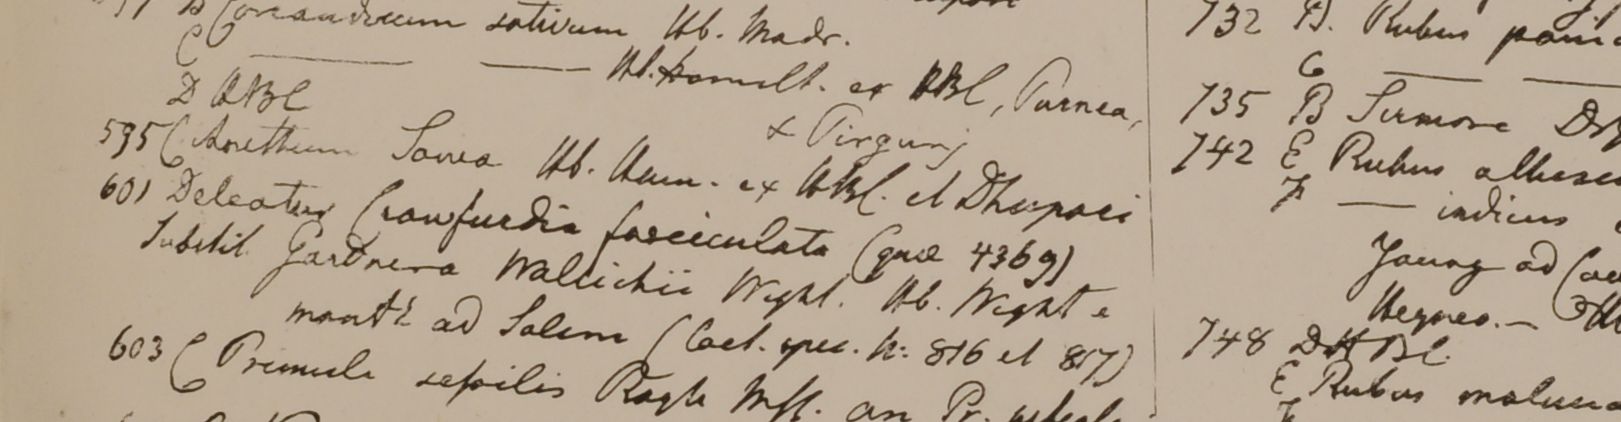 B Coriandrum sativum Hb. Madr.
C Hb. Hamilt. ex HBC, Purnea,
D HBC & Pirgunj
595 C Anethum Sowa Hb. Ham. ex HBC. et Dheypaci
601 Deleatur Crawfurdia fasciculata (quæ 4369)
Substit. Gardneria Wallichii Wight. Hb. Wight e
mont. ad Salem (Coel. spec. N. 816 et 817)
603 C Primula sessilis Royle Mss. an Pr.
732 B. Rubus
C
735 B Sirmore
742 E Rubus
F — indicus
Young ad
Heyneo. —
748 D HBC.
E Rubus
F